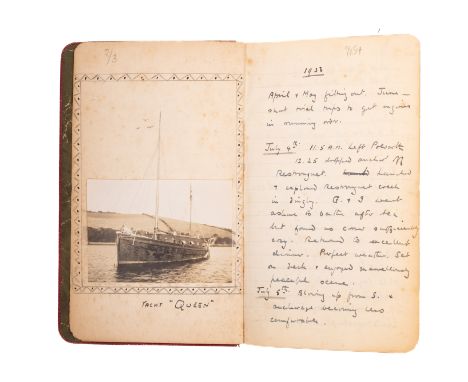 7/3
YACHT "QUEEN"
1933
April & May fitting out. June —
short trial trips to get engines
in running order.
July 4th. 11.5 A.M. Left Polruan
12.25 dropped anchor
Restronguet. Launched
& explored Restronguet creek
in dinghy. & I went
ashore to bathe after tea,
but found no cove sufficiently
cosy. Returned to excellent
dinner. Perfect weather. Sat
on deck & enjoyed marvellously
peaceful scene.
July 5th. Blowing up from S. &
anchorage becoming less
comfortable.